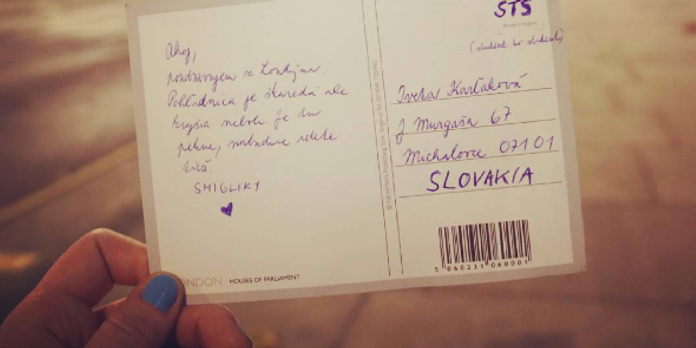 Ahoj,
pozdravujem z Londýna.
Pohľadnica je škaredá ale
krajšia nebola. Je tu
pekne, nabudúce idete
tiež.
SMIGLIKY
LONDON HOUSES OF PARLIAMENT
STS
(student to student)
Iveta
J Murgaša 67
Michalovce 07101
SLOVAKIA
5 060231 060001